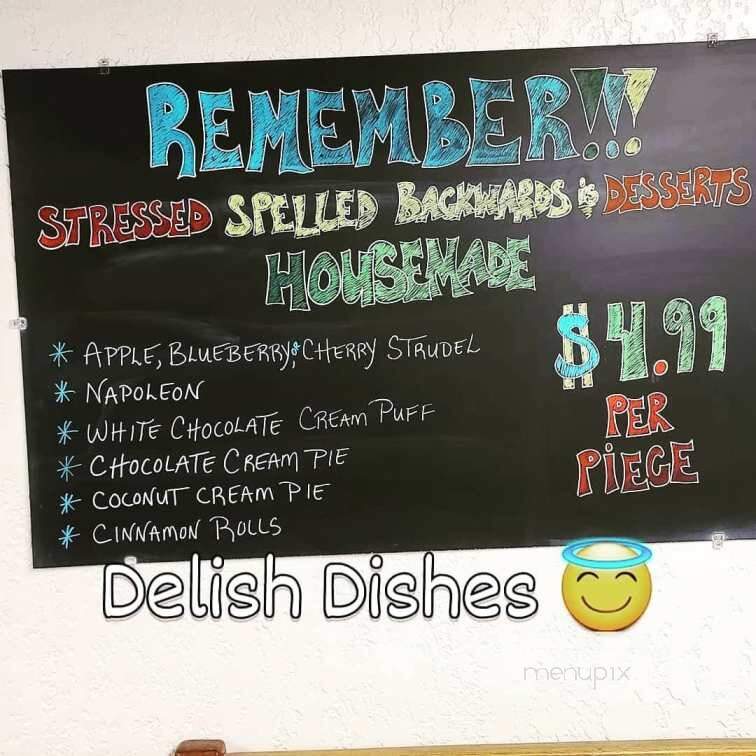 REMEMBER!!!
STRESSED SPELLED BACKWARDS is DESSERTS
HOUSEMADE
* APPLE, BLUEBERRY, & CHERRY STRUDEL
* NAPOLEON
* WHITE CHOCOLATE CREAM PUFF
* CHOCOLATE CREAM PIE
* COCONUT CREAM PIE
* CINNAMON ROLLS
$4.99
PER
PiECE
Delish Dishes 😇
menupix